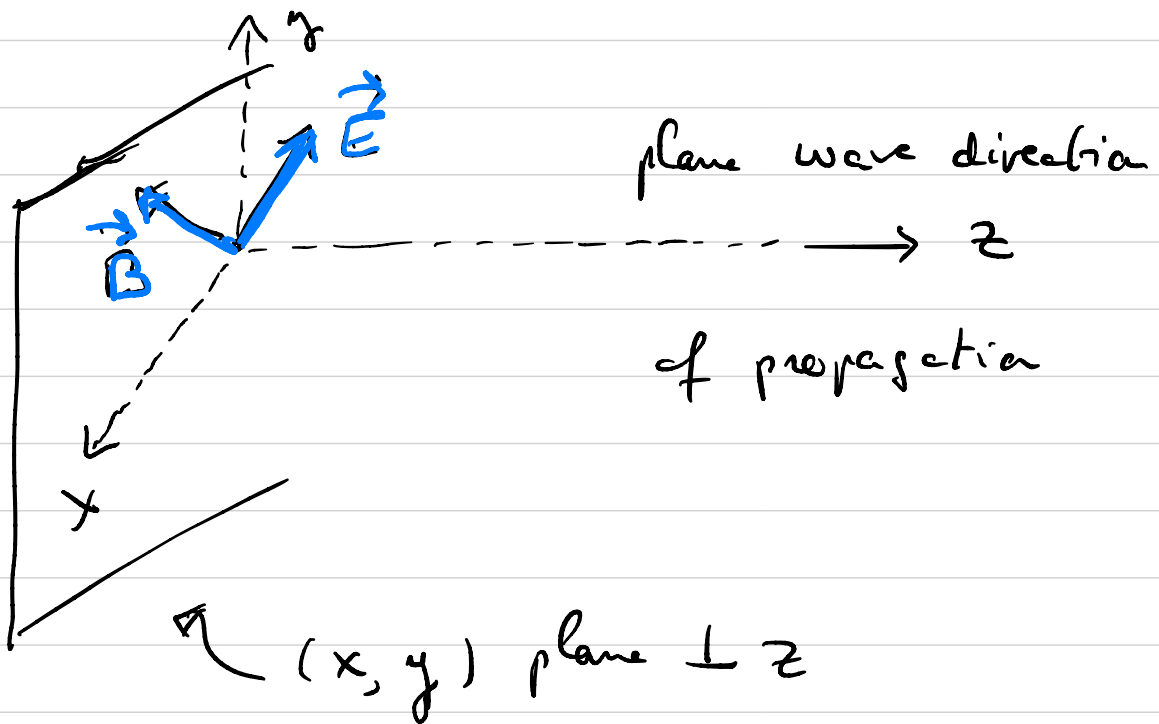 y
E⃗
plane wave direction
B⃗
z
of propagation
x
(x, y) plane ⊥ z